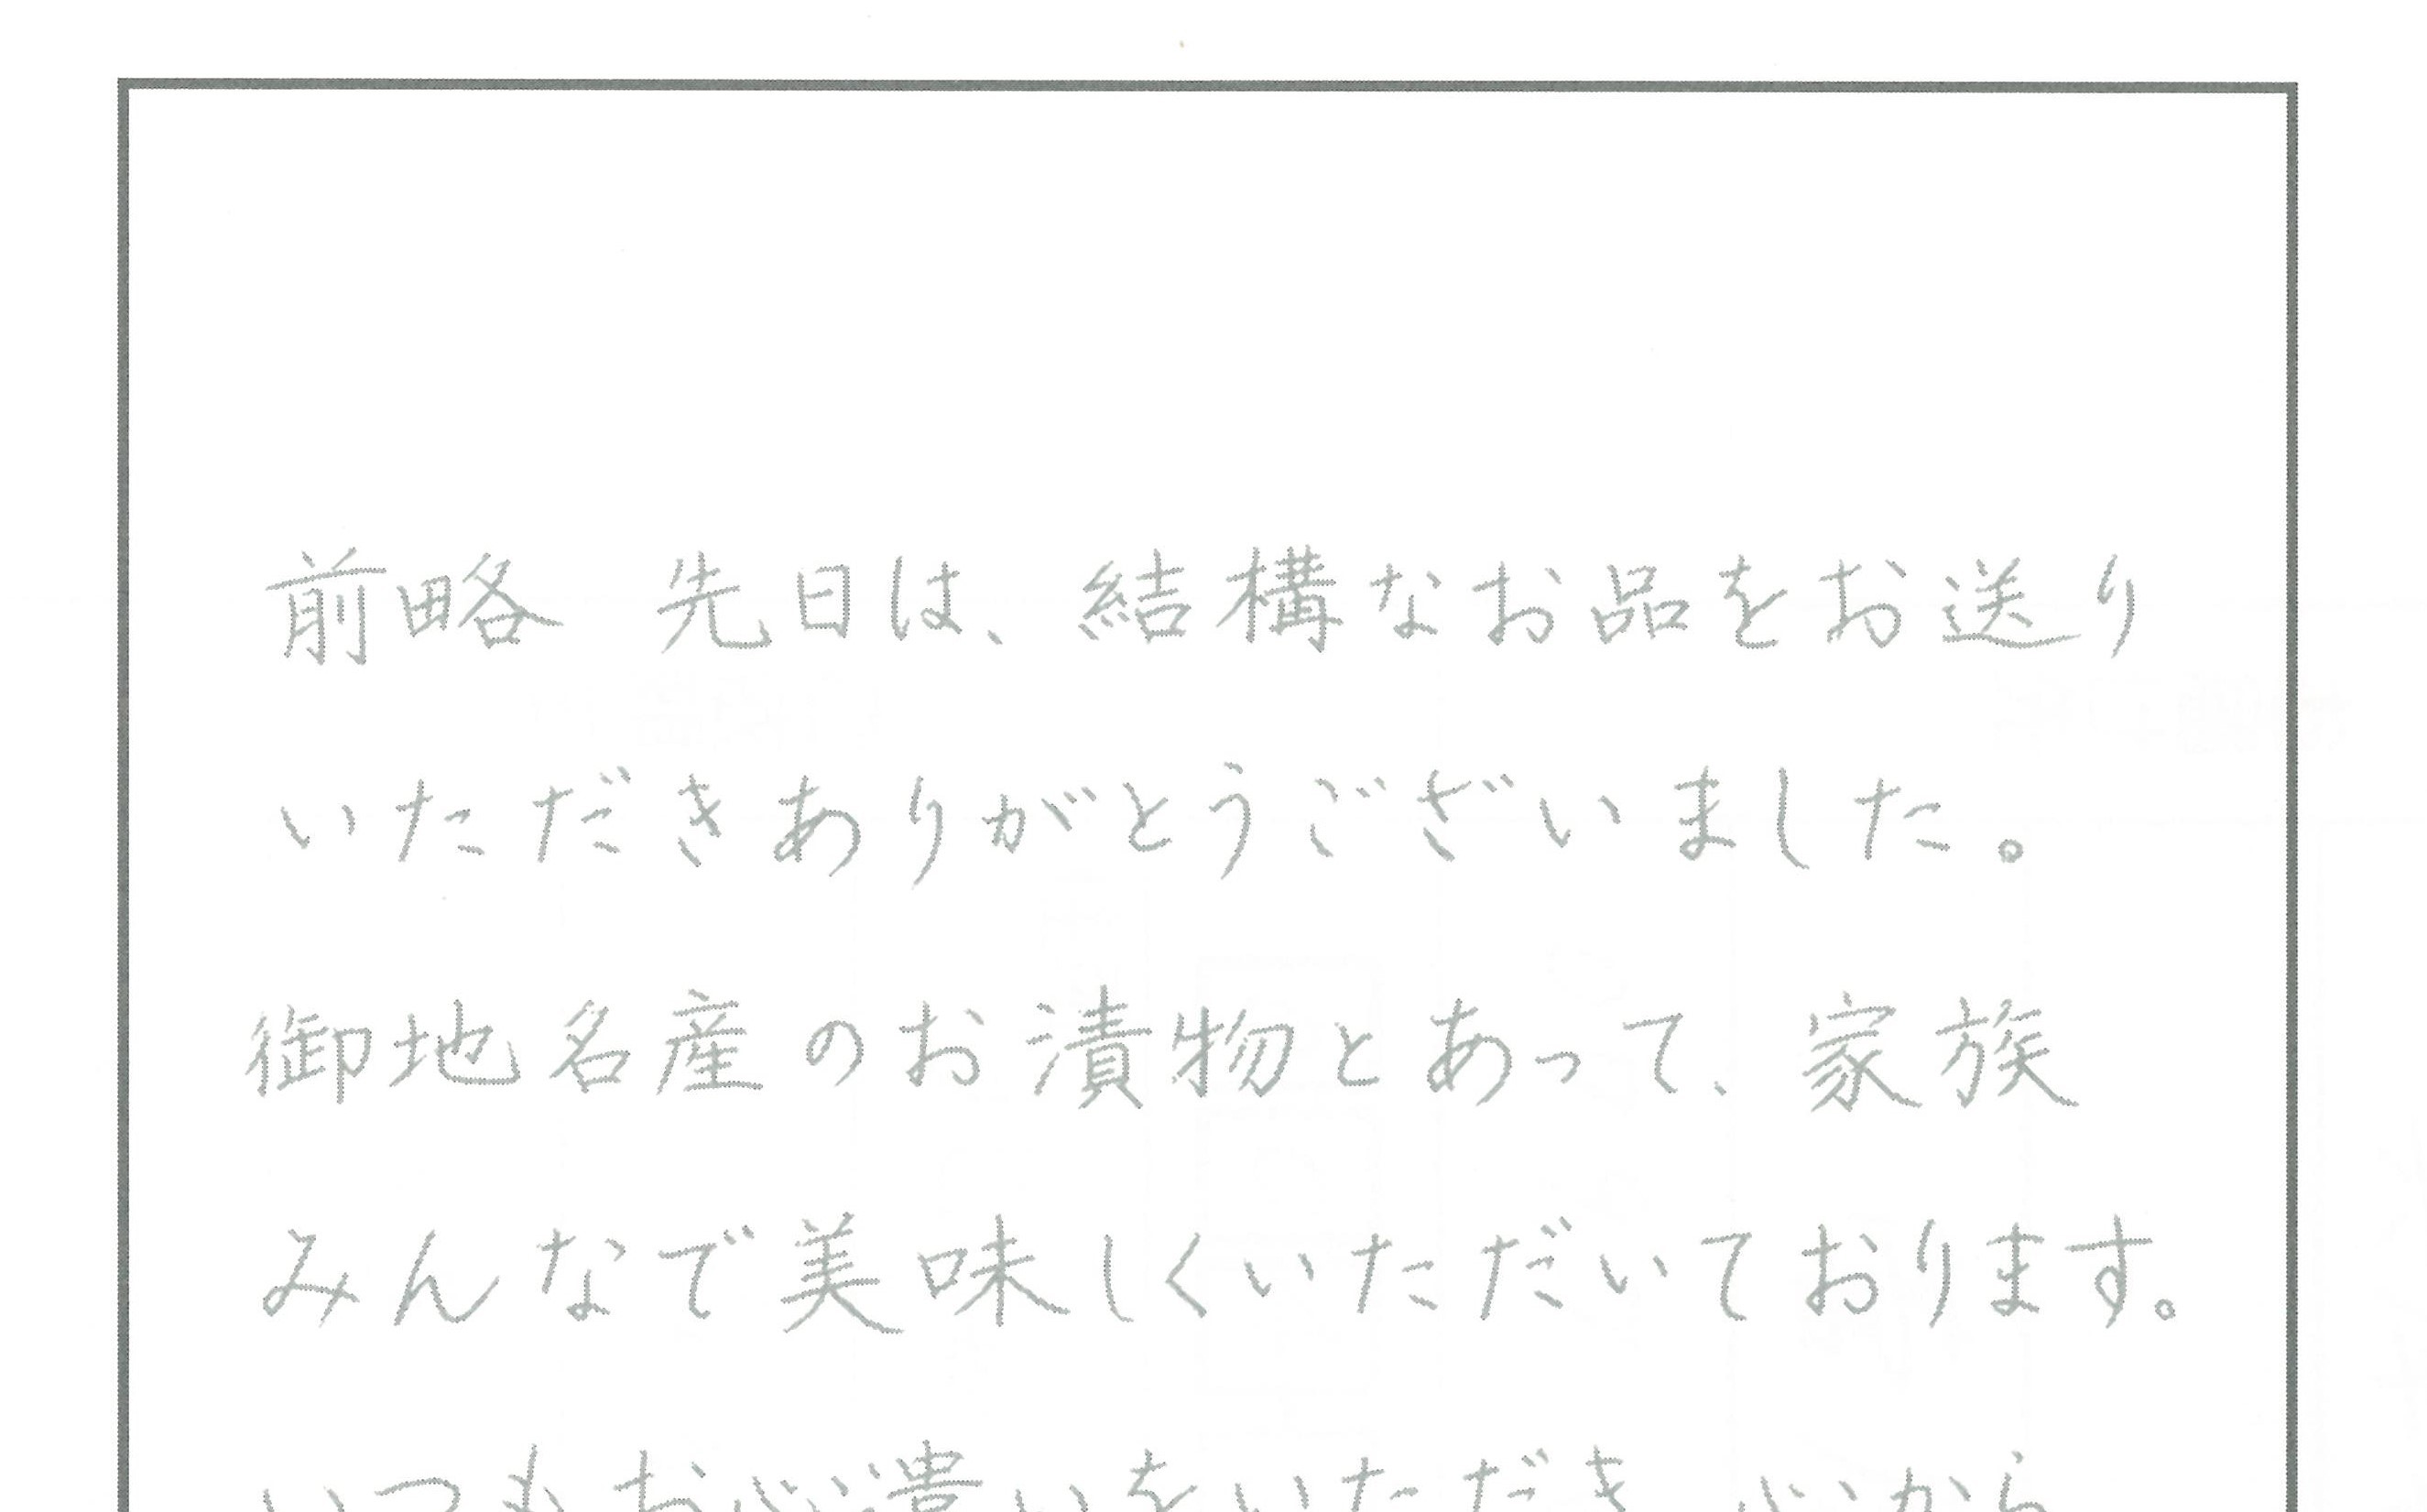 前略　先日は、結構なお品をお送り
いただきありがとうございました。
御地名産のお漬物とあって、家族
みんなで美味しくいただいております。
いつもお心遣いをいただき 心から